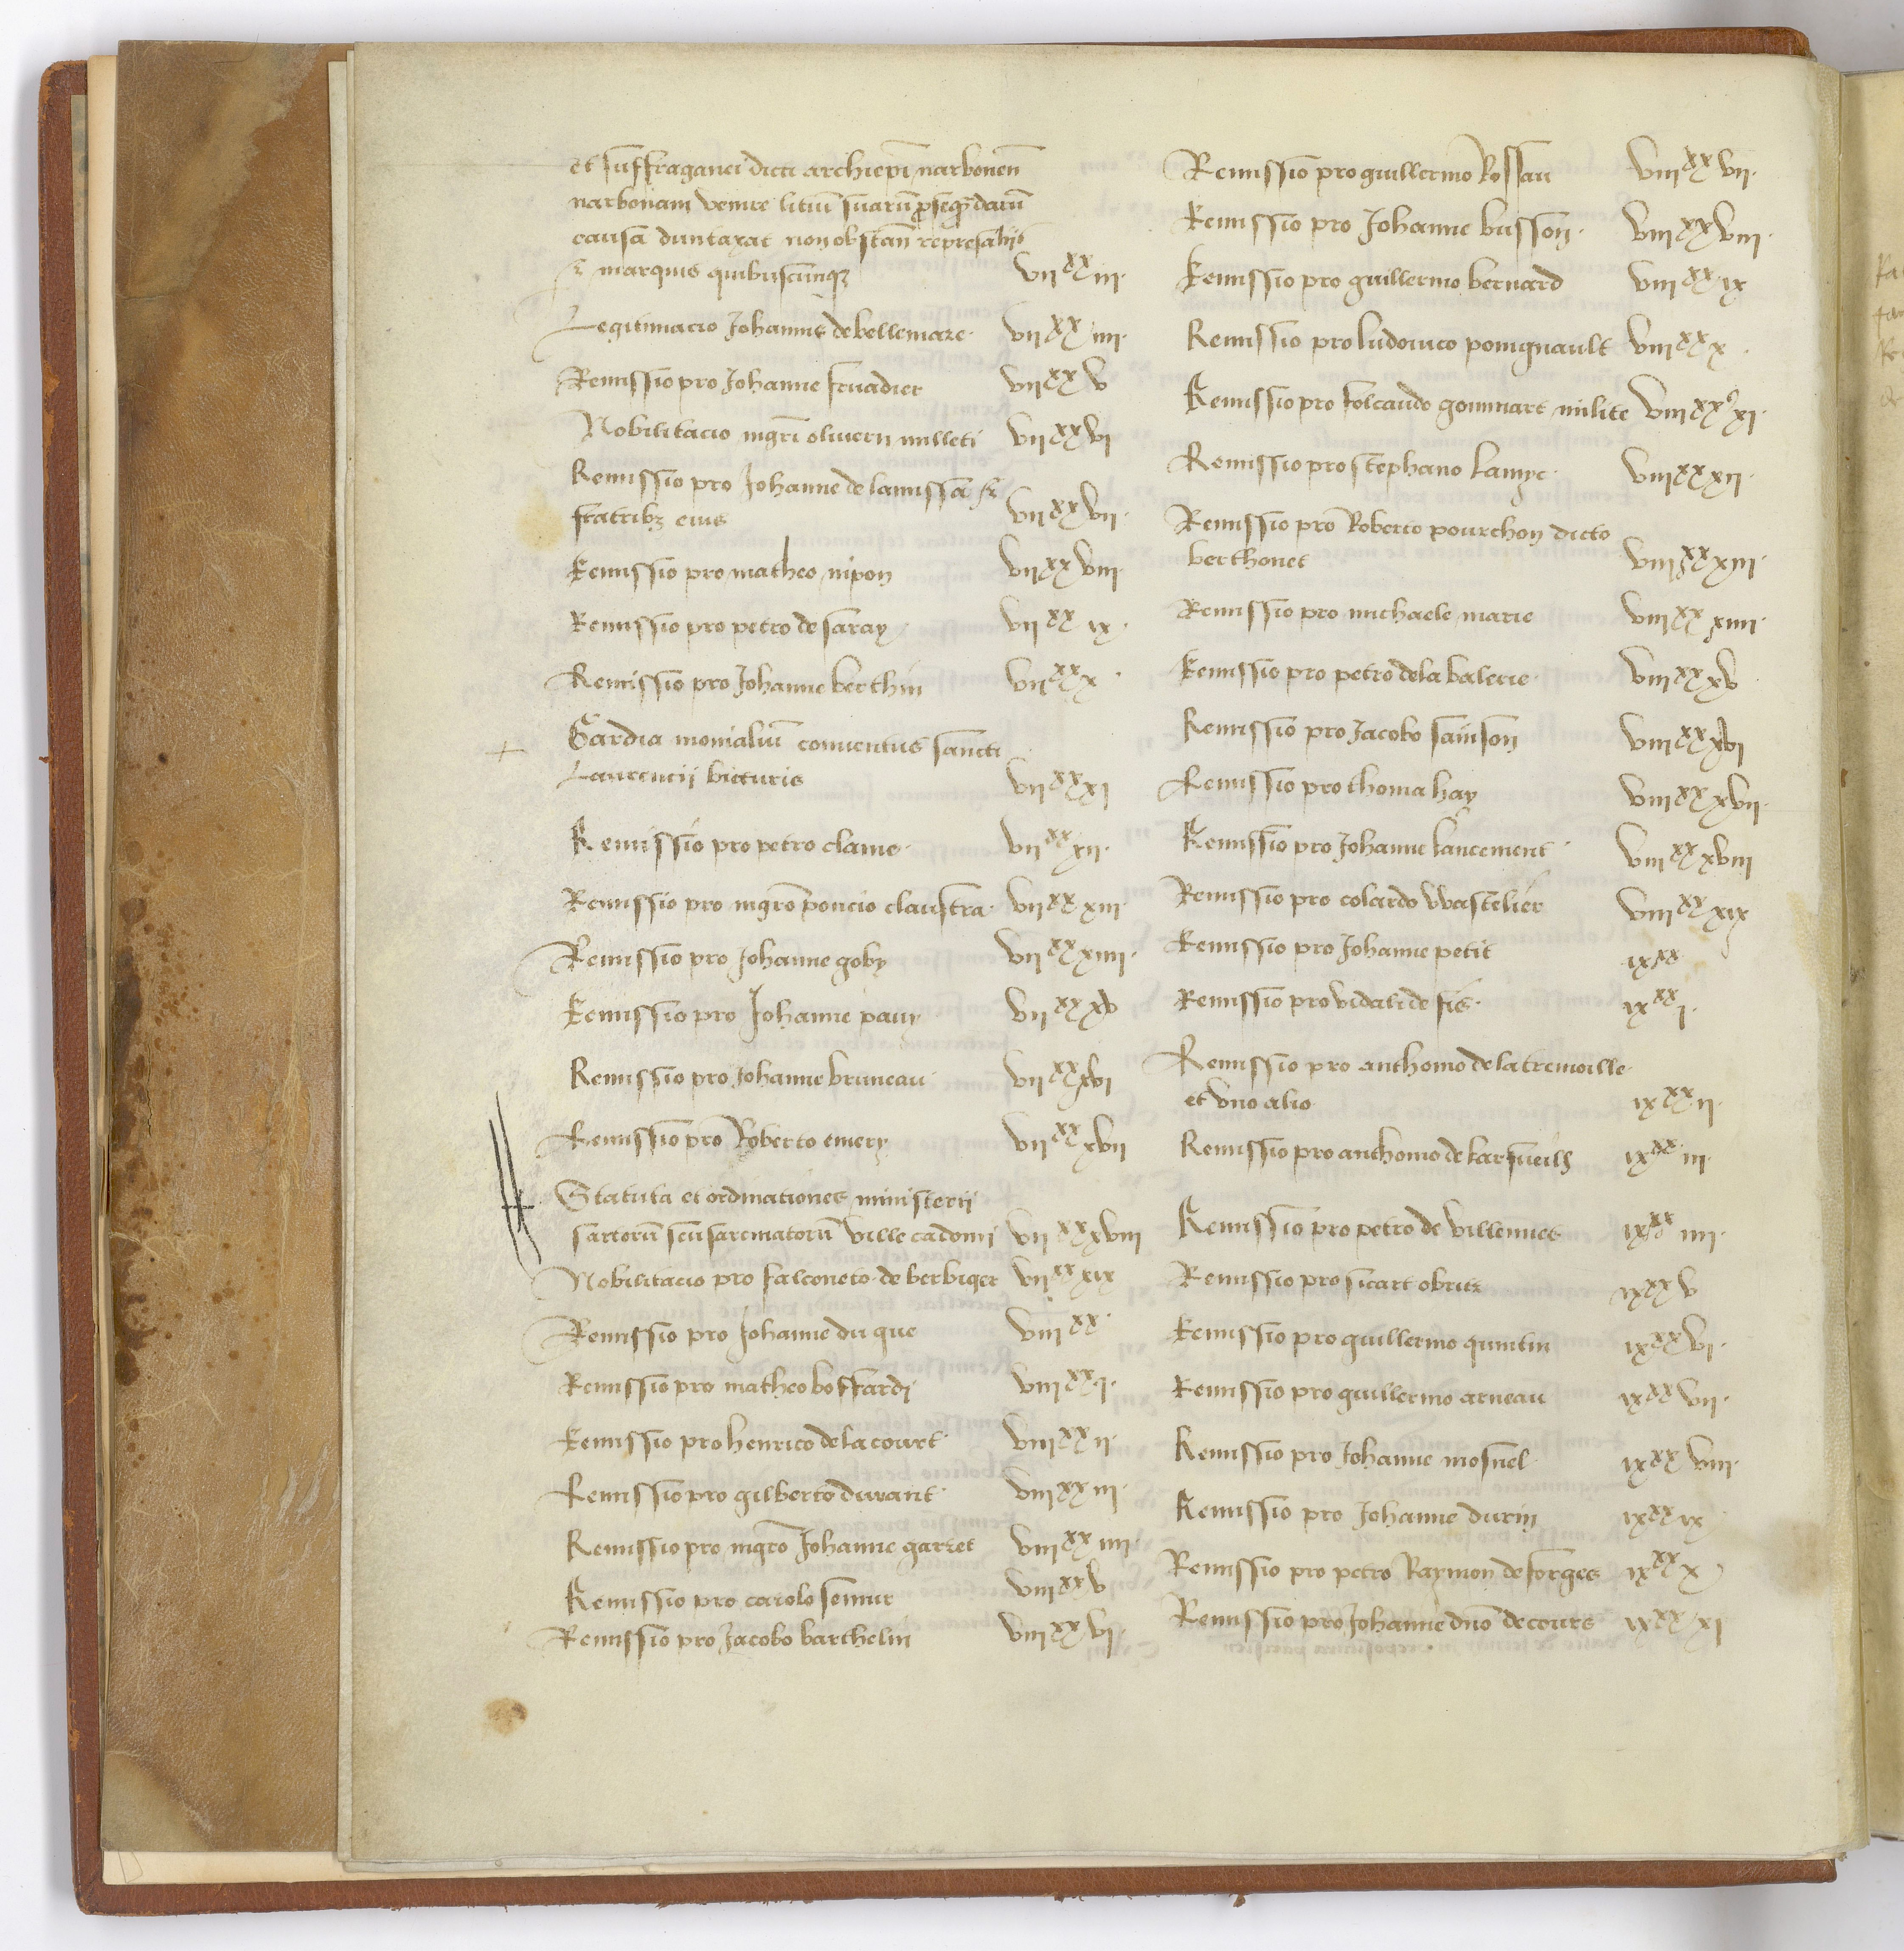 et suffraganei dicti archiepi narbonen
narbonam venire litiu suaru prosequedaru
causa duntaxat non obstan represaliis
et marquis quibuscunque VII XX III.
Legitimacio Johannis de bellemare. VII XX IIII.
Remissio pro Johanne VII XX V
Nobilitacio magri oliverii milleti VII XX VI
Remissio pro Johanne de lamissa et
fratribz eius VII XX VII.
Remissio pro matheo nipon VII XX VIII.
Remissio pro petro de saray VII XX IX.
Remissio pro Johanne berthin VII XX X
Gardia monialiu conventus sancti
Laurencii bituris VII XX XI
Remissio pro petro clame. VII XX XII.
Remissio pro magro poncio claustra. VII XX XIII.
Remissio pro Johanne goby VII XX XIIII.
Remissio pro Johanne pauy VII XX XV
Remissio pro Johanne bruneau VII XX XVI
Remissio pro Roberto emery VII XX XVII
Statuta et ordinationes ministerii
sartoru seu sarcinatoru ville cadomi VII XX XVIII
Nobilitacio pro falconeto de berbiger VII XX XIX
Remissio pro Johanne du que VIII XX.
Remissio pro matheo boffardi VIII XX I.
Remissio pro henrico de la court. VIII XX II.
Remissio pro gilberto durant. VIII XX III.
Remissio pro magro Johanne garret VIII XX IIII.
Remissio pro carolo VIII XX V
Remissio pro Jacobo barthelin VIII XX VI.
Remissio pro guillermo Rossau VIII XX VII.
Remissio pro Johanne busson. VIII XX VIII.
Remissio pro guillermo bernard VIII XX IX
Remissio pro ludovico poingnault VIII XX X.
Remissio pro folcaudo gommart milite VIII XX XI.
Remissio pro stephano lamye. VIII XX XII.
Remissio pro Roberto pourchon dicto
berthonet VIII XX XIII.
Remissio pro michaele marie VIII XX XIIII.
Remissio pro petro de la valerie. VIII XX XV
Remissio pro Jacobo sainson VIII XX XVI
Remissio pro thoma hay VIII XX XVII.
Remissio pro Johanne lancement. VIII XX XVIII
Remissio pro colardo Wastelier VIII XX XIX
Remissio pro Johanne petit IX XX
Remissio pro vidali de fis. IX XX I.
Remissio pro anthonio de la tremoille.
et uno alio. IX XX II.
Remissio pro anthonio de IX XX III.
Remissio pro petro de villennes IX XX IIII.
Remissio pro sicart IX XX V
Remissio pro guillermo quintin IX XX VI.
Remissio pro guillermo arneau IX XX VII.
Remissio pro Johanne mosnel. IX XX VIII.
Remissio pro Johanne durin IX XX IX
Remissio pro petro Raymon de forges IX XX X
Remissio pro Johanne dno de cours IX XX XI